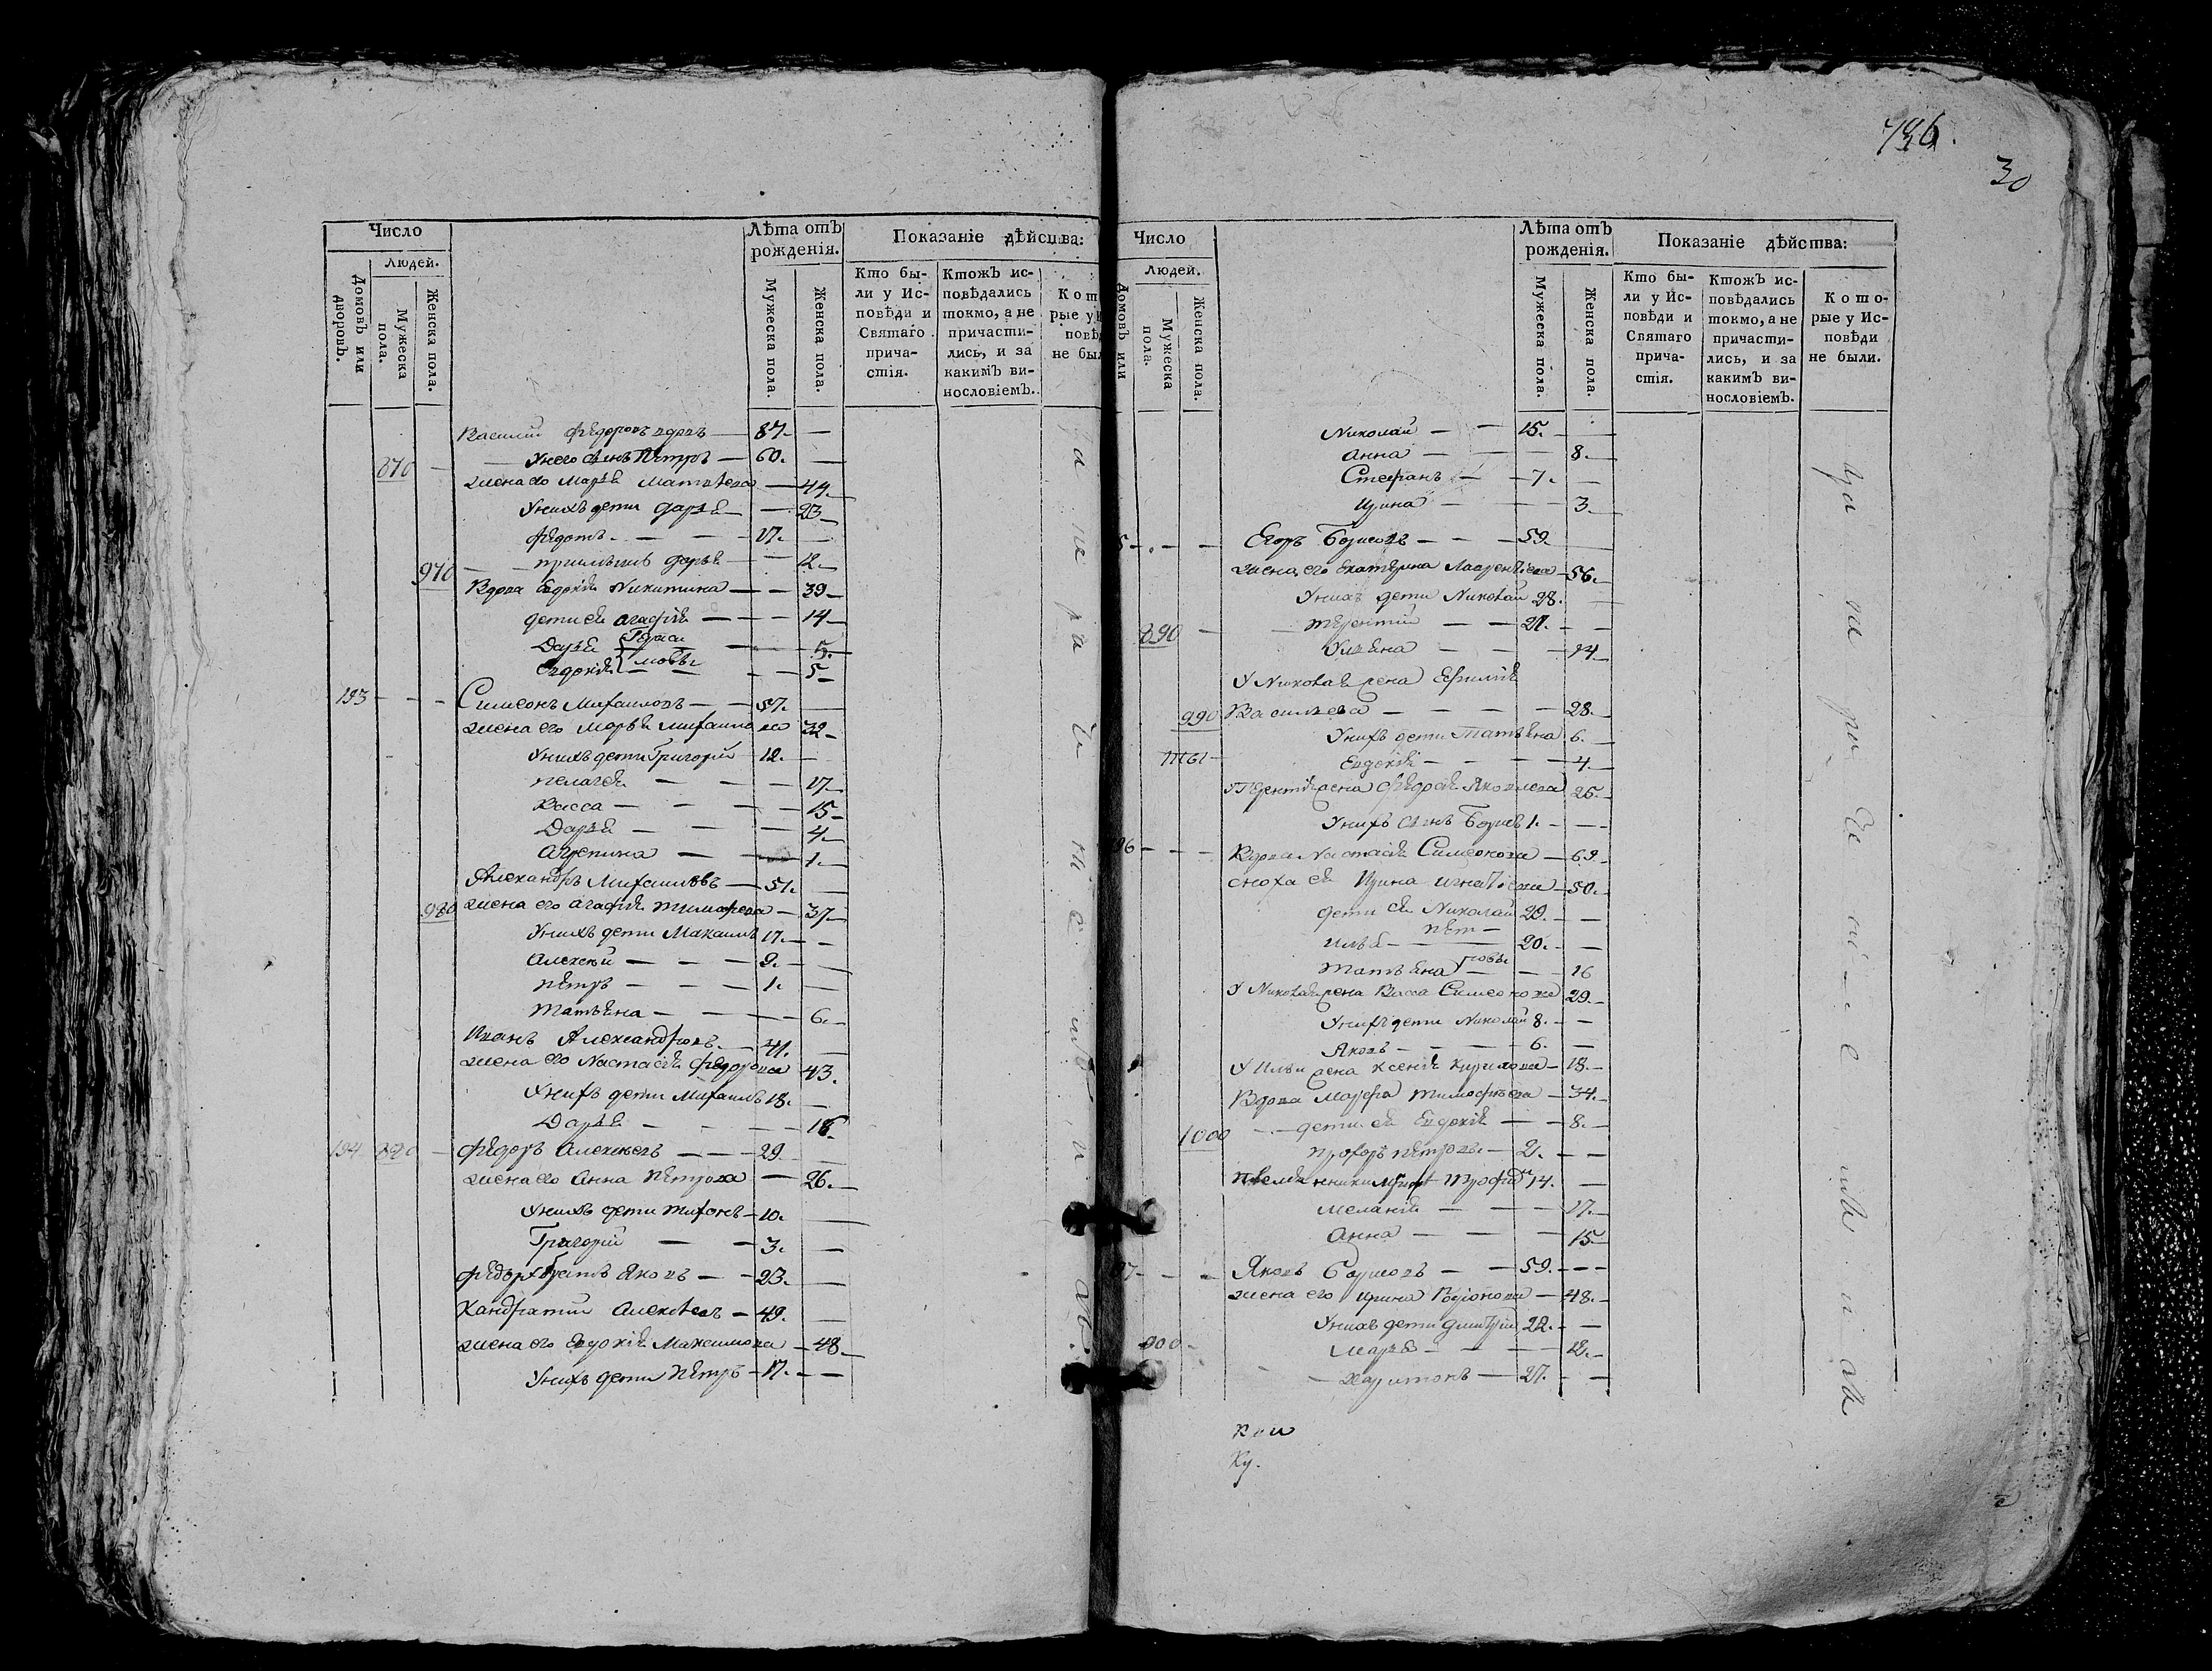 Число
Людей.
Домовъ или дворовъ.
Мужеска пола.
Женска пола.
Лѣта отъ рожденія.
Мужеска пола.
Женска пола.
Показаніе дѣйства:
Кто были у Исповѣди и Святаго причастія.
Ктожъ исповѣдались токмо, а не причастились, и за какимъ винословіемъ.
Василій Федоровъ вдовъ — 87. —
870 — У него сынъ Петръ — 60. —
жена его Марья Матвѣева — 44. —
У нихъ дети Дарья — — 23 —
Федотъ — — 17. —
970 — Дарья — 12. —
Вдова Евдокія Никитина — — 39 —
дети ея Агафія — — — 14 —
Дарья — 5. —
Евдокія — — — 5 —
193 — — — Симеонъ Михаиловъ — — 57. —
жена его Марья Михаилова 32 —
У нихъ дети Григорій 12. —
Пелагея — — — 17 —
Васса — — — 15 —
Дарья — — — 4. —
Агрепина — — 1. —
Александръ Михаиловъ — 51. —
980 жена его Агафія Тимофеева — 37 —
У нихъ дети Максимъ 17. — —
Алексѣй — — — 9. — —
Петръ — — — 1. —
Татьяна — — — 6. —
Иванъ Александровъ — 41. —
жена его Настасія Федорова 43. —
У нихъ дети Михаилъ 18. —
Дарья — — — 16
194 880 — Федоръ Алексѣевъ — — — 29. —
жена его Анна Петрова — 26. —
У нихъ дети Тихонъ — 10. —
Григорій — — 3. —
Яковъ — — 23. —
Кандратій Алексѣевъ — 49. —
жена его Евдокія Максимова — 48. —
У нихъ дети Петръ — 17. — —
30
Число
Людей.
Домовъ или
Мужеска пола.
Женска пола.
Лѣта отъ рожденія.
Мужеска пола.
Женска пола.
Показаніе дѣйства:
Кто были у Исповѣди и Святаго причастія.
Ктожъ исповѣдались токмо, а не причастились, и за какимъ винословіемъ.
Которые у Исповѣди не были.
Николай — — 15. —
Анна — — — 8. —
Стефанъ — — 7. —
Ирина — — — 3. —
5 — — — Егоръ Борисовъ — — — 59. —
жена его Екатерина Лаврентіева — 56. —
У нихъ дети Николай 28. —
890 — Терентій — — 21. — —
Ульяна — — — 14 —
У Николая жена Ефимія
990 Васильева — — — — 28. —
У нихъ дети Татьяна 6. —
Евдокія — — — 4 —
У Терентія жена Федосія Яковлева 25. —
У нихъ сынъ Борисъ 1. — —
96 — — — Вдова Настасія Симеонова — 69 —
сноха ея Ирина Игнатіева — 50. —
дети ея Николай 29. — —
Илья — 20. — —
Татьяна — — 16
У Николая жена Васса Симеонова 29. —
У нихъ дети Николай 8. — —
Яковъ — — — 6. —
У Ильи жена Ксенія Кирилова — 18. —
Вдова Марфа Тимофѣева — 34. —
1000 — дети ея Евдокія — — 8. —
Прохоръ Петровъ — 2. — —
14. —
Меланія — — — 17. —
Анна — — — 15 —
97 — — — Яковъ Борисовъ — — 59. — — —
жена его Ирина Родіонова — 48. —
У нихъ дети Дмитрій 22. — —
900 — Марья — — — 12. —
Харитонъ — 21. — —